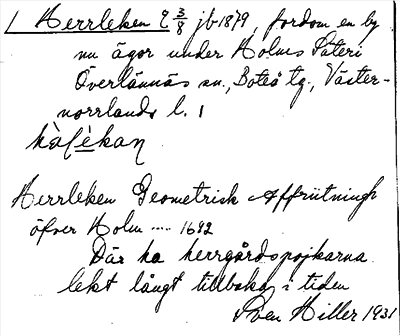 Herrleken 2 3/8 jb 1879, fordom en by
nu ägor under Holms Säteri
Överlännäs sn., Boteå tg., Väster-
norrlands l. 1
hàlèkan
Herrleken Geometrisk Affriitningh
öfver Holm .... 1692
Där ha herrgårdspojkarna
lekt långt tillbaka i tiden
Sven Hiller 1931